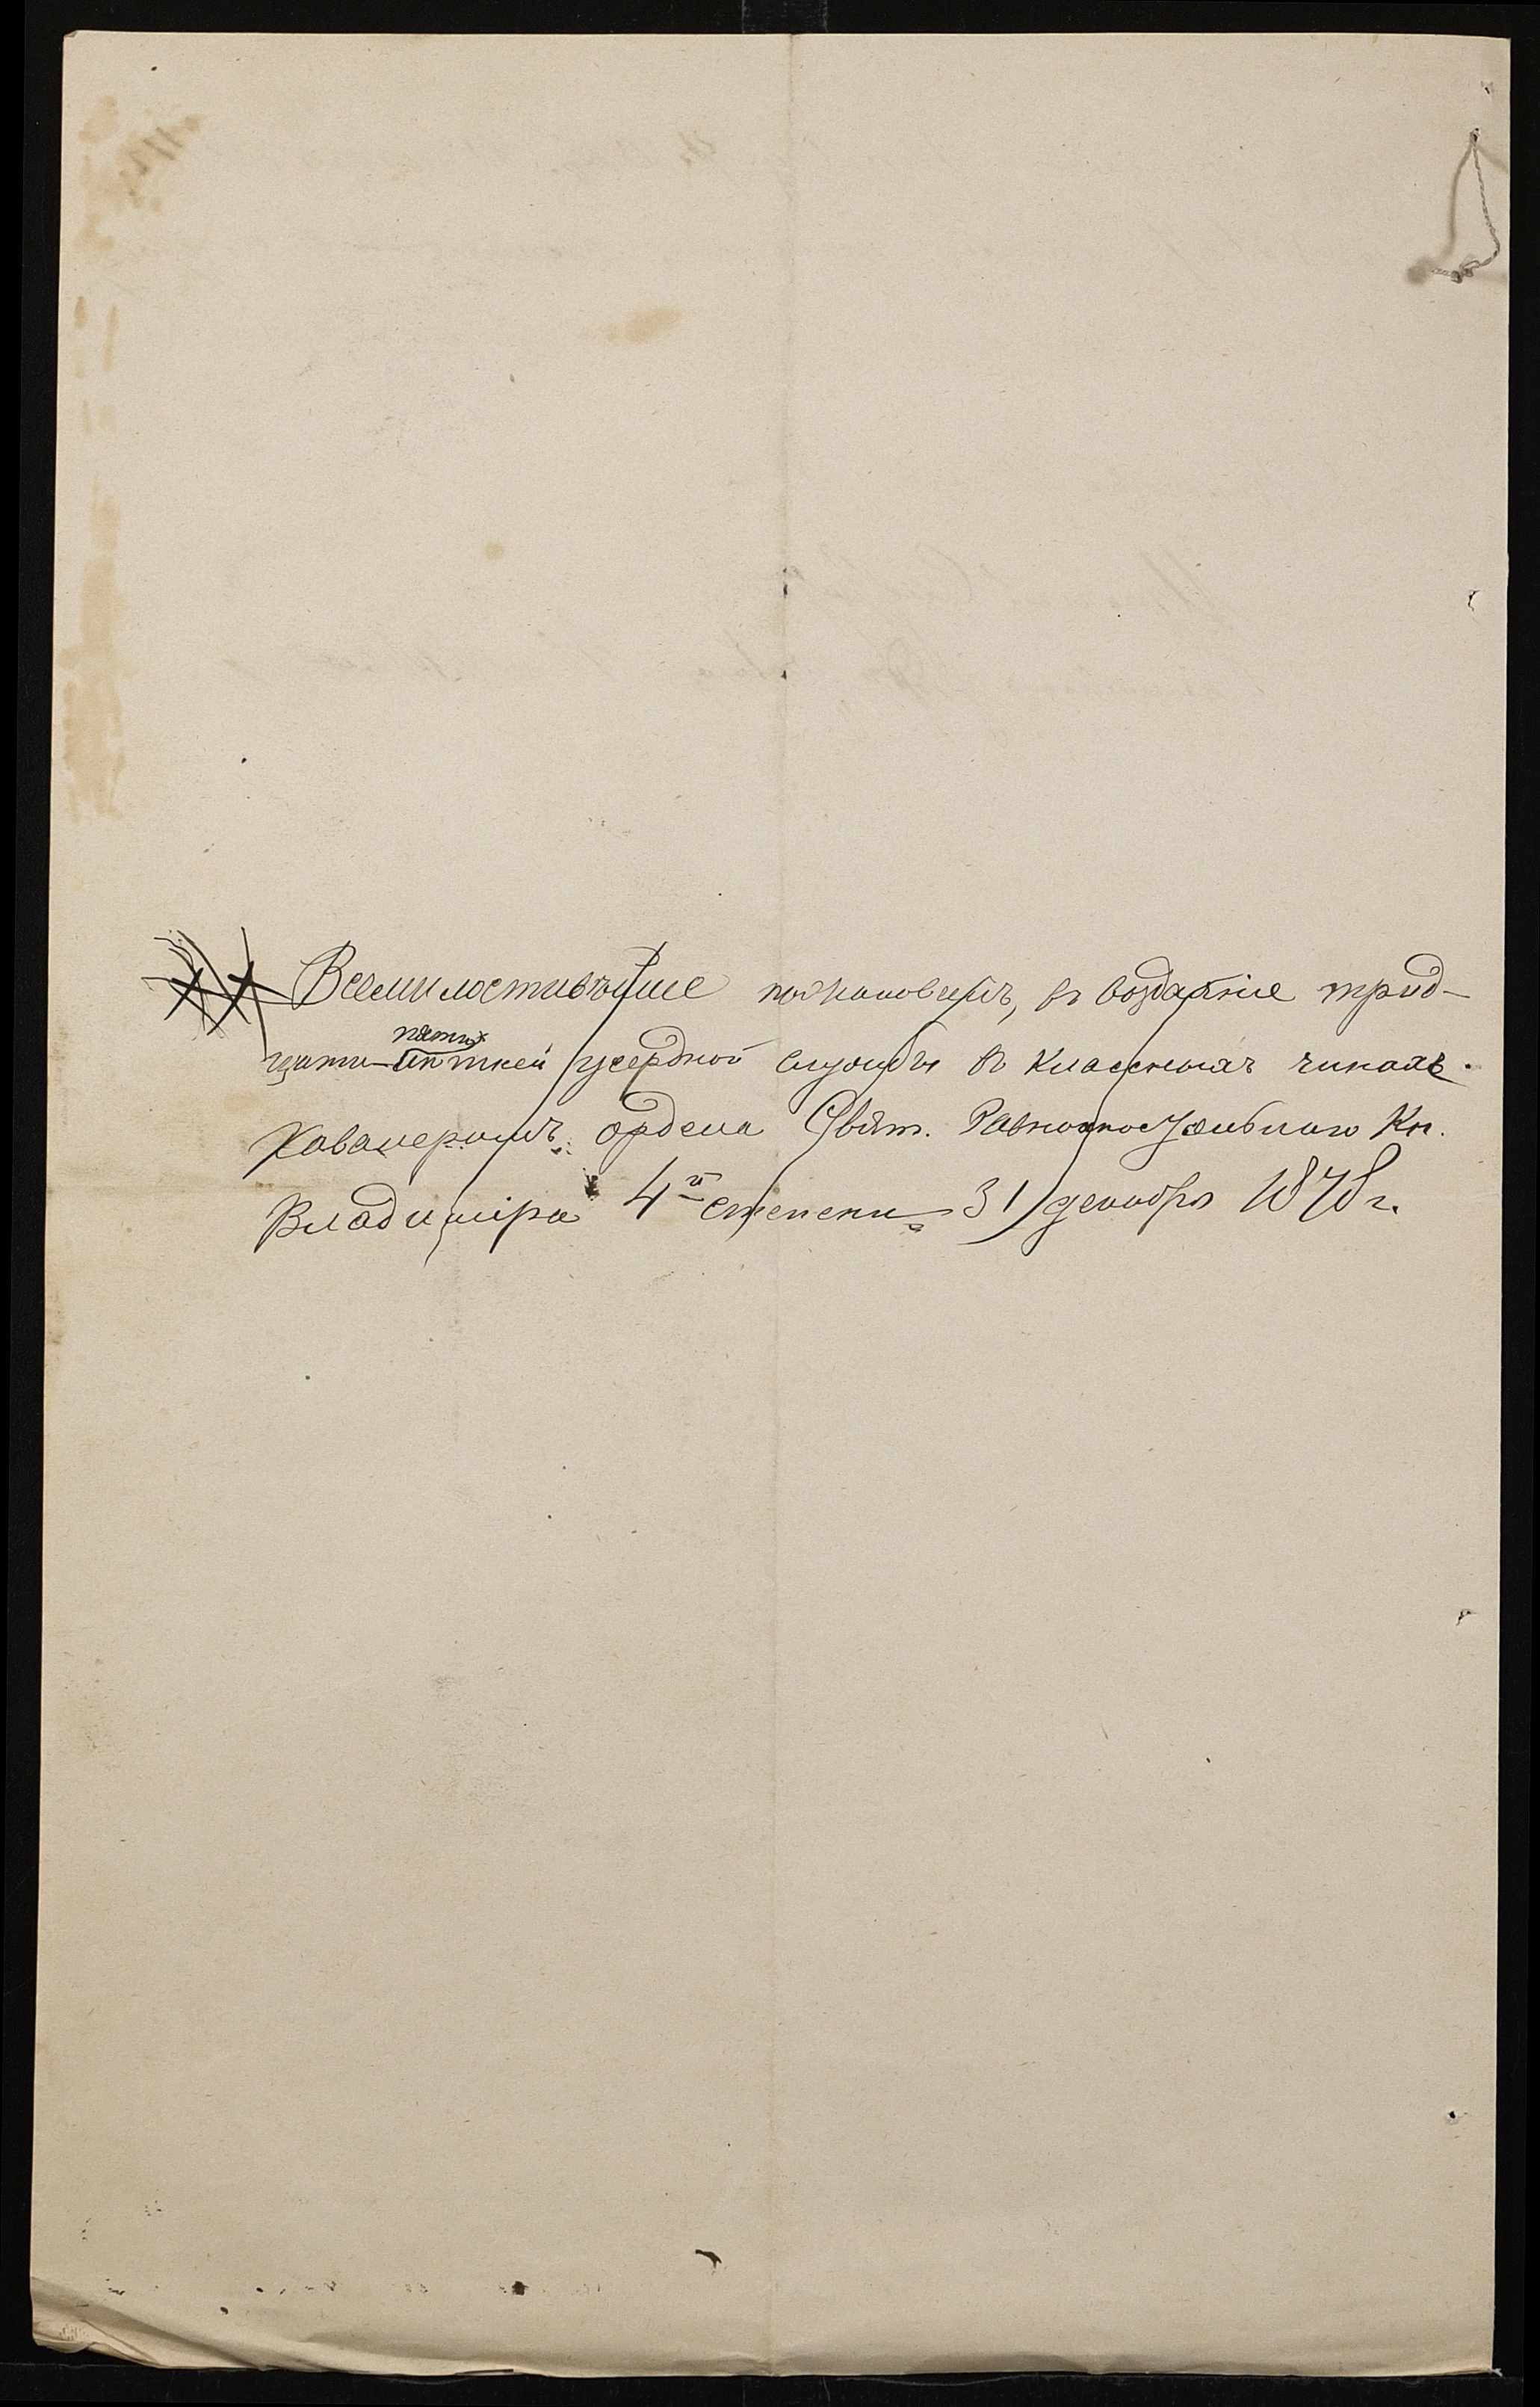 Всемилостивѣйше пожалованъ, въ воздаяніе трид-
пяти
цати-лѣтней усердной службы въ классныхъ чинахъ
Кавалеромъ ордена Свят. Равноапостольнаго Кн.
Владиміра 4й степени 31 декабря 1878 г.